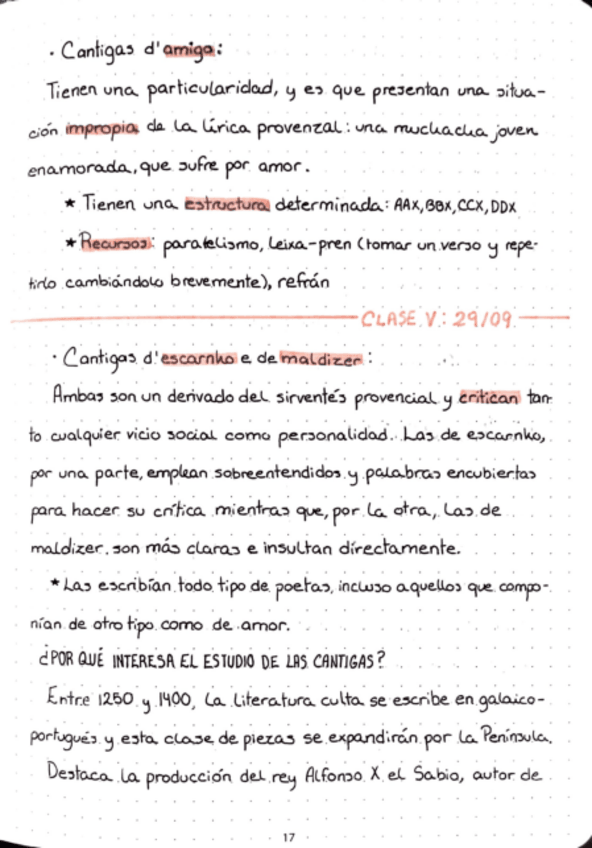 · Cantigas d'amigo:
Tienen una particularidad, y es que presentan una situa-
ción impropia de la lírica provenzal: una muchacha joven
enamorada, que sufre por amor.
* Tienen una estructura determinada: AAX, BBX, CCX, DDX
* Recursos: paralelismo, leixa-pren (tomar un verso y repe-
tirlo cambiándolo brevemente), refrán
CLASE V: 29/09
· Cantigas d'escarnho e de maldizer:
Ambas son un derivado del sirventés provencial y critican tan-
to cualquier vicio social como personalidad. Las de escarnho,
por una parte, emplean sobreentendidos y palabras encubiertas
para hacer su crítica mientras que, por la otra, las de
maldizer son más claras e insultan directamente.
* Las escribían todo tipo de poetas, incluso aquellos que compo-
nían de otro tipo como de amor.
¿POR QUÉ INTERESA EL ESTUDIO DE LAS CANTIGAS?
Entre 1250 y 1400, la literatura culta se escribe en galaico-
portugués y esta clase de piezas se expandirán por la Península.
Destaca la producción del rey Alfonso X el Sabio, autor de
17